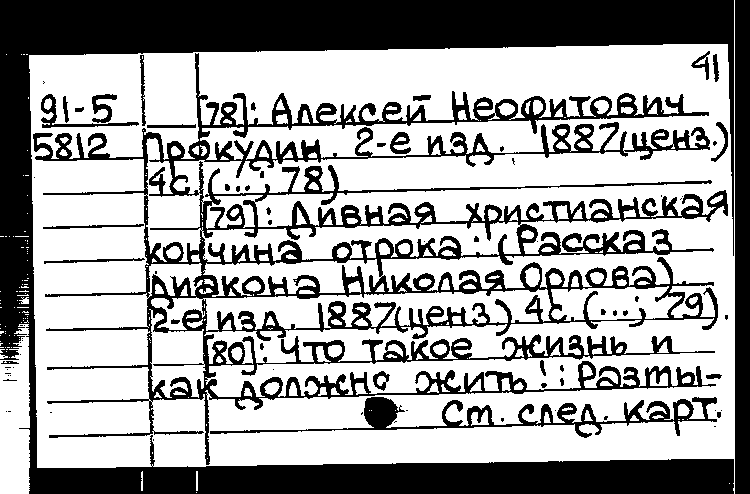 41
91-5 [78]: Алексей Неофитович
5812 Прокудин. 2-е изд. 1887(ценз.)
4с. (...; 78)
[79]: Дивная христианская
кончина отрока: (Рассказ
диакона Николая Орлова)
2-е изд. 1887(ценз). 4с. (...; 79).
[80]: Что такое жизнь и
как должно жить!: Размы-
Ст. след. карт.